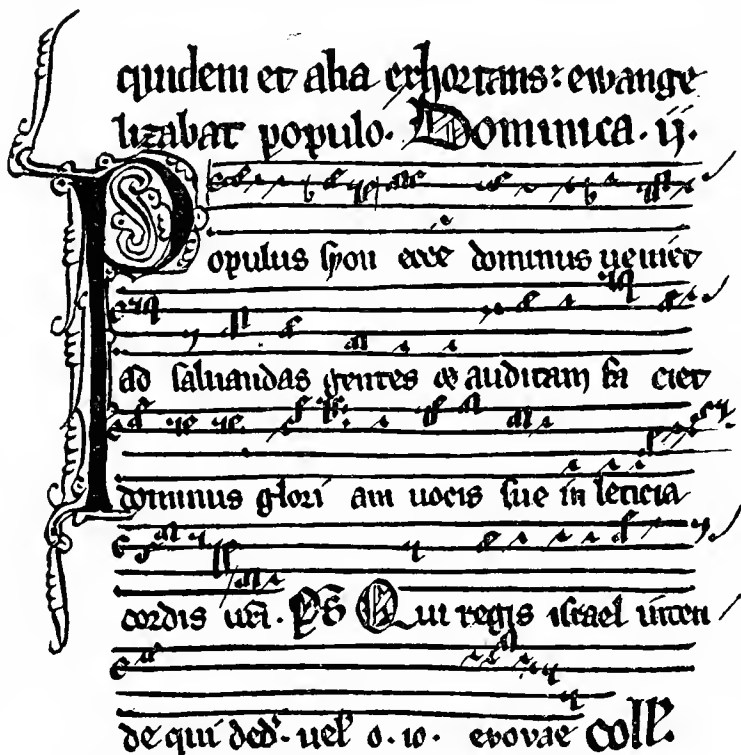 quidem et alia exhortans: ewange
lizabat populo. Dominica. ij.
Populus syon ecce dominus ueniet
ad saluandas gentes et auditam fa ciet
dominus glori am uocis sue in leticia
cordis uri. Ps Qui regis israel inten
de qui ded. uel o. io. evovae Coll.